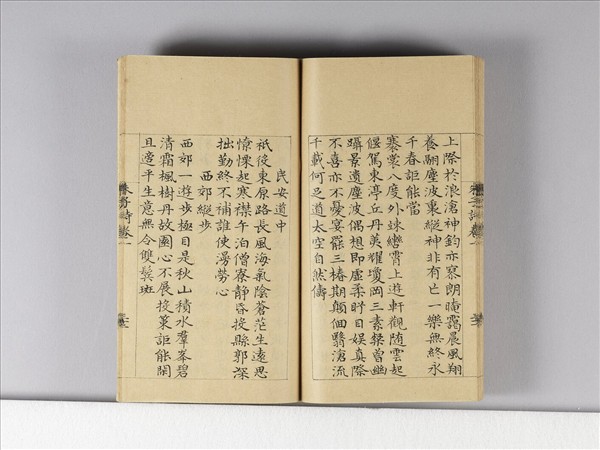 上際於浪滄神鈞亦寥朗晻靄晨風翔
養翮塵波裏縱神非有亡一樂無終永
千春詎能當
褰裳八度外竦轡霄上遊軒觀随雲起
偃駕東亭丘丹荑耀瓊岡三素粲曾幽
躡景遺塵波偶想即虛柔盱目娱真際
不喜亦不憂宴罷三椿期顛佃翳滄流
千載何足道太空自然儔
民安道中
祇役東原路長風海氣陰蒼茫生遠思
憭慄起寒襟午泊僧寮靜昏投縣郭深
拙勤終不補誰使漫勞心
西郊縱步
西郊一遊步極目是秋山積水羣峯碧
清霜楓樹丹故園心不展投策詎能閑
且適平生意無令雙鬢斑